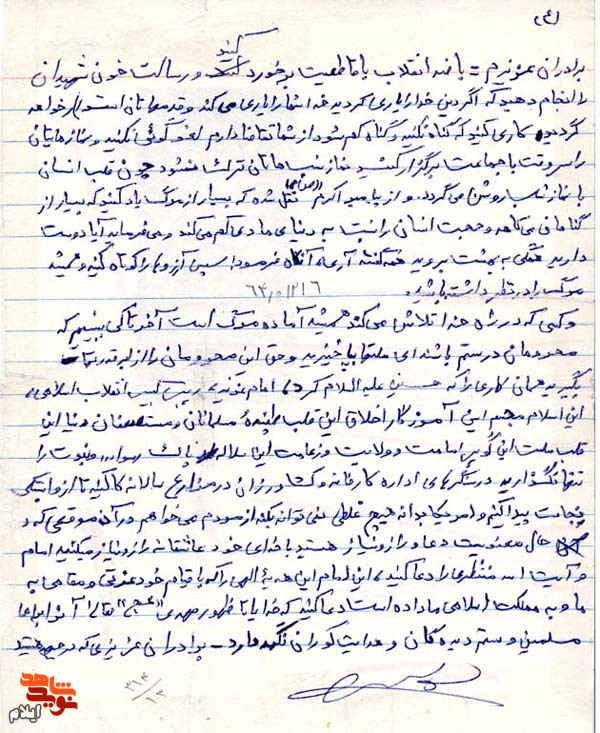 (۴)
کنید
برادران عزیزم = با ضد انقلاب با قاطعیت برخورد کنید و رسالت خون شهیدان
را انجام دهید که اگر دین خدا را یاری کردید خدا شما را یاری می کند و قدمهایتان استوار خواهد
گردید. کاری کنید که گناه نکنید و گناه کم شود از شما تقاضا دارم لغو گوئی نکنید و نمازهایتان
را سر وقت با جماعت برگزار کنید نماز شب هاتان ترک نشود چون قلب انسان
با نماز شب روشن می گردد. و از پیامبر اکرم (ص) نقل شده که بسیار از مرگ یاد کنید که بسیار از
گناهان می کاهد و محبت انسان را نسبت به دنیای مادی کم می کند و می فرماید آیا دوست
دارید همگی به بهشت بروید همه گفتند آری آنگاه فرمود پس آرزوها را کوتاه کنید و همیشه
مرگ را در نظر داشته باشید.
و کسی که در راه خدا تلاش می کند همیشه آماده مرگ است آخر تا کی ببینیم که
محرومان در ستم باشند ای ملتها بپا خیزید و حق این محرومان را از ابرقدرتها
بگیرید همان کاری را که حسین علیه السلام کرد، امام عزیز، رهبر کبیر انقلاب اسلامی،
این اسلام مجسم این آموزگار اخلاق این قلب طپنده مسلمانان و مستضعفان دنیا این
قلب ملت این گوهر امامت و ولایت و زعامت این سلاله پاک نبوت را
تنها نگذارید در سنگرهای اداره کارخانه و کشاورزان در مزارع سالانه کار کنید تا از وابستگی
نجات پیدا کنیم و امریکا بداند هیچ غلطی نمی تواند بکند از مردم می خواهم در آن موقعی که در
حال معنویت دعا و راز و نیاز هستید با خدای خود عاشقانه راز و نیاز میکنید امام
و آیت الله منتظری را دعا کنید، این امام این هدیه الهی را که با قیام خود عزتی و مقامی به
ما و به مملکت اسلامی ما داده است دعا کنید که خدایا تا ظهور مهدی «عج»
مسلمین و ستم دیدگان و هدایت گر ما نگهدارد — برادرانی عزیزی که در جبهه هستید
شاهد
نوید
ایلام